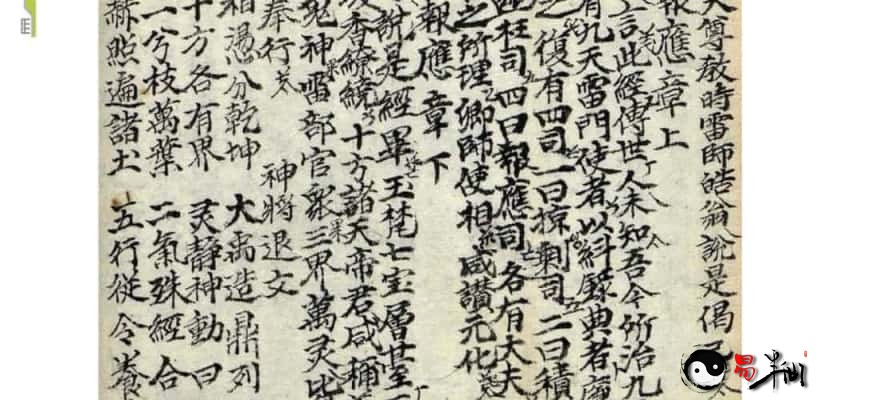 天尊教時雷師皓翁說是偈
報應章上
言此經傳世人未知吾今所治九
有九天雷門使者以糾錄典者廉
之復有四司一曰掠剩司二曰積
枉司四曰報應司各有大夫
之所理卿師使相咸讚元化
報應章下
說是經畢玉梵七宝層臺
香繚繞十方諸天帝君咸稱
鬼神雷部官眾三界萬灵
奉行
神將退文
相憑分乾坤 大禹造鼎列
十方各有界 灵静神動曰
一兮枝萬葉 二氣殊經合
赫照遍諸土 五行從令養
易半仙